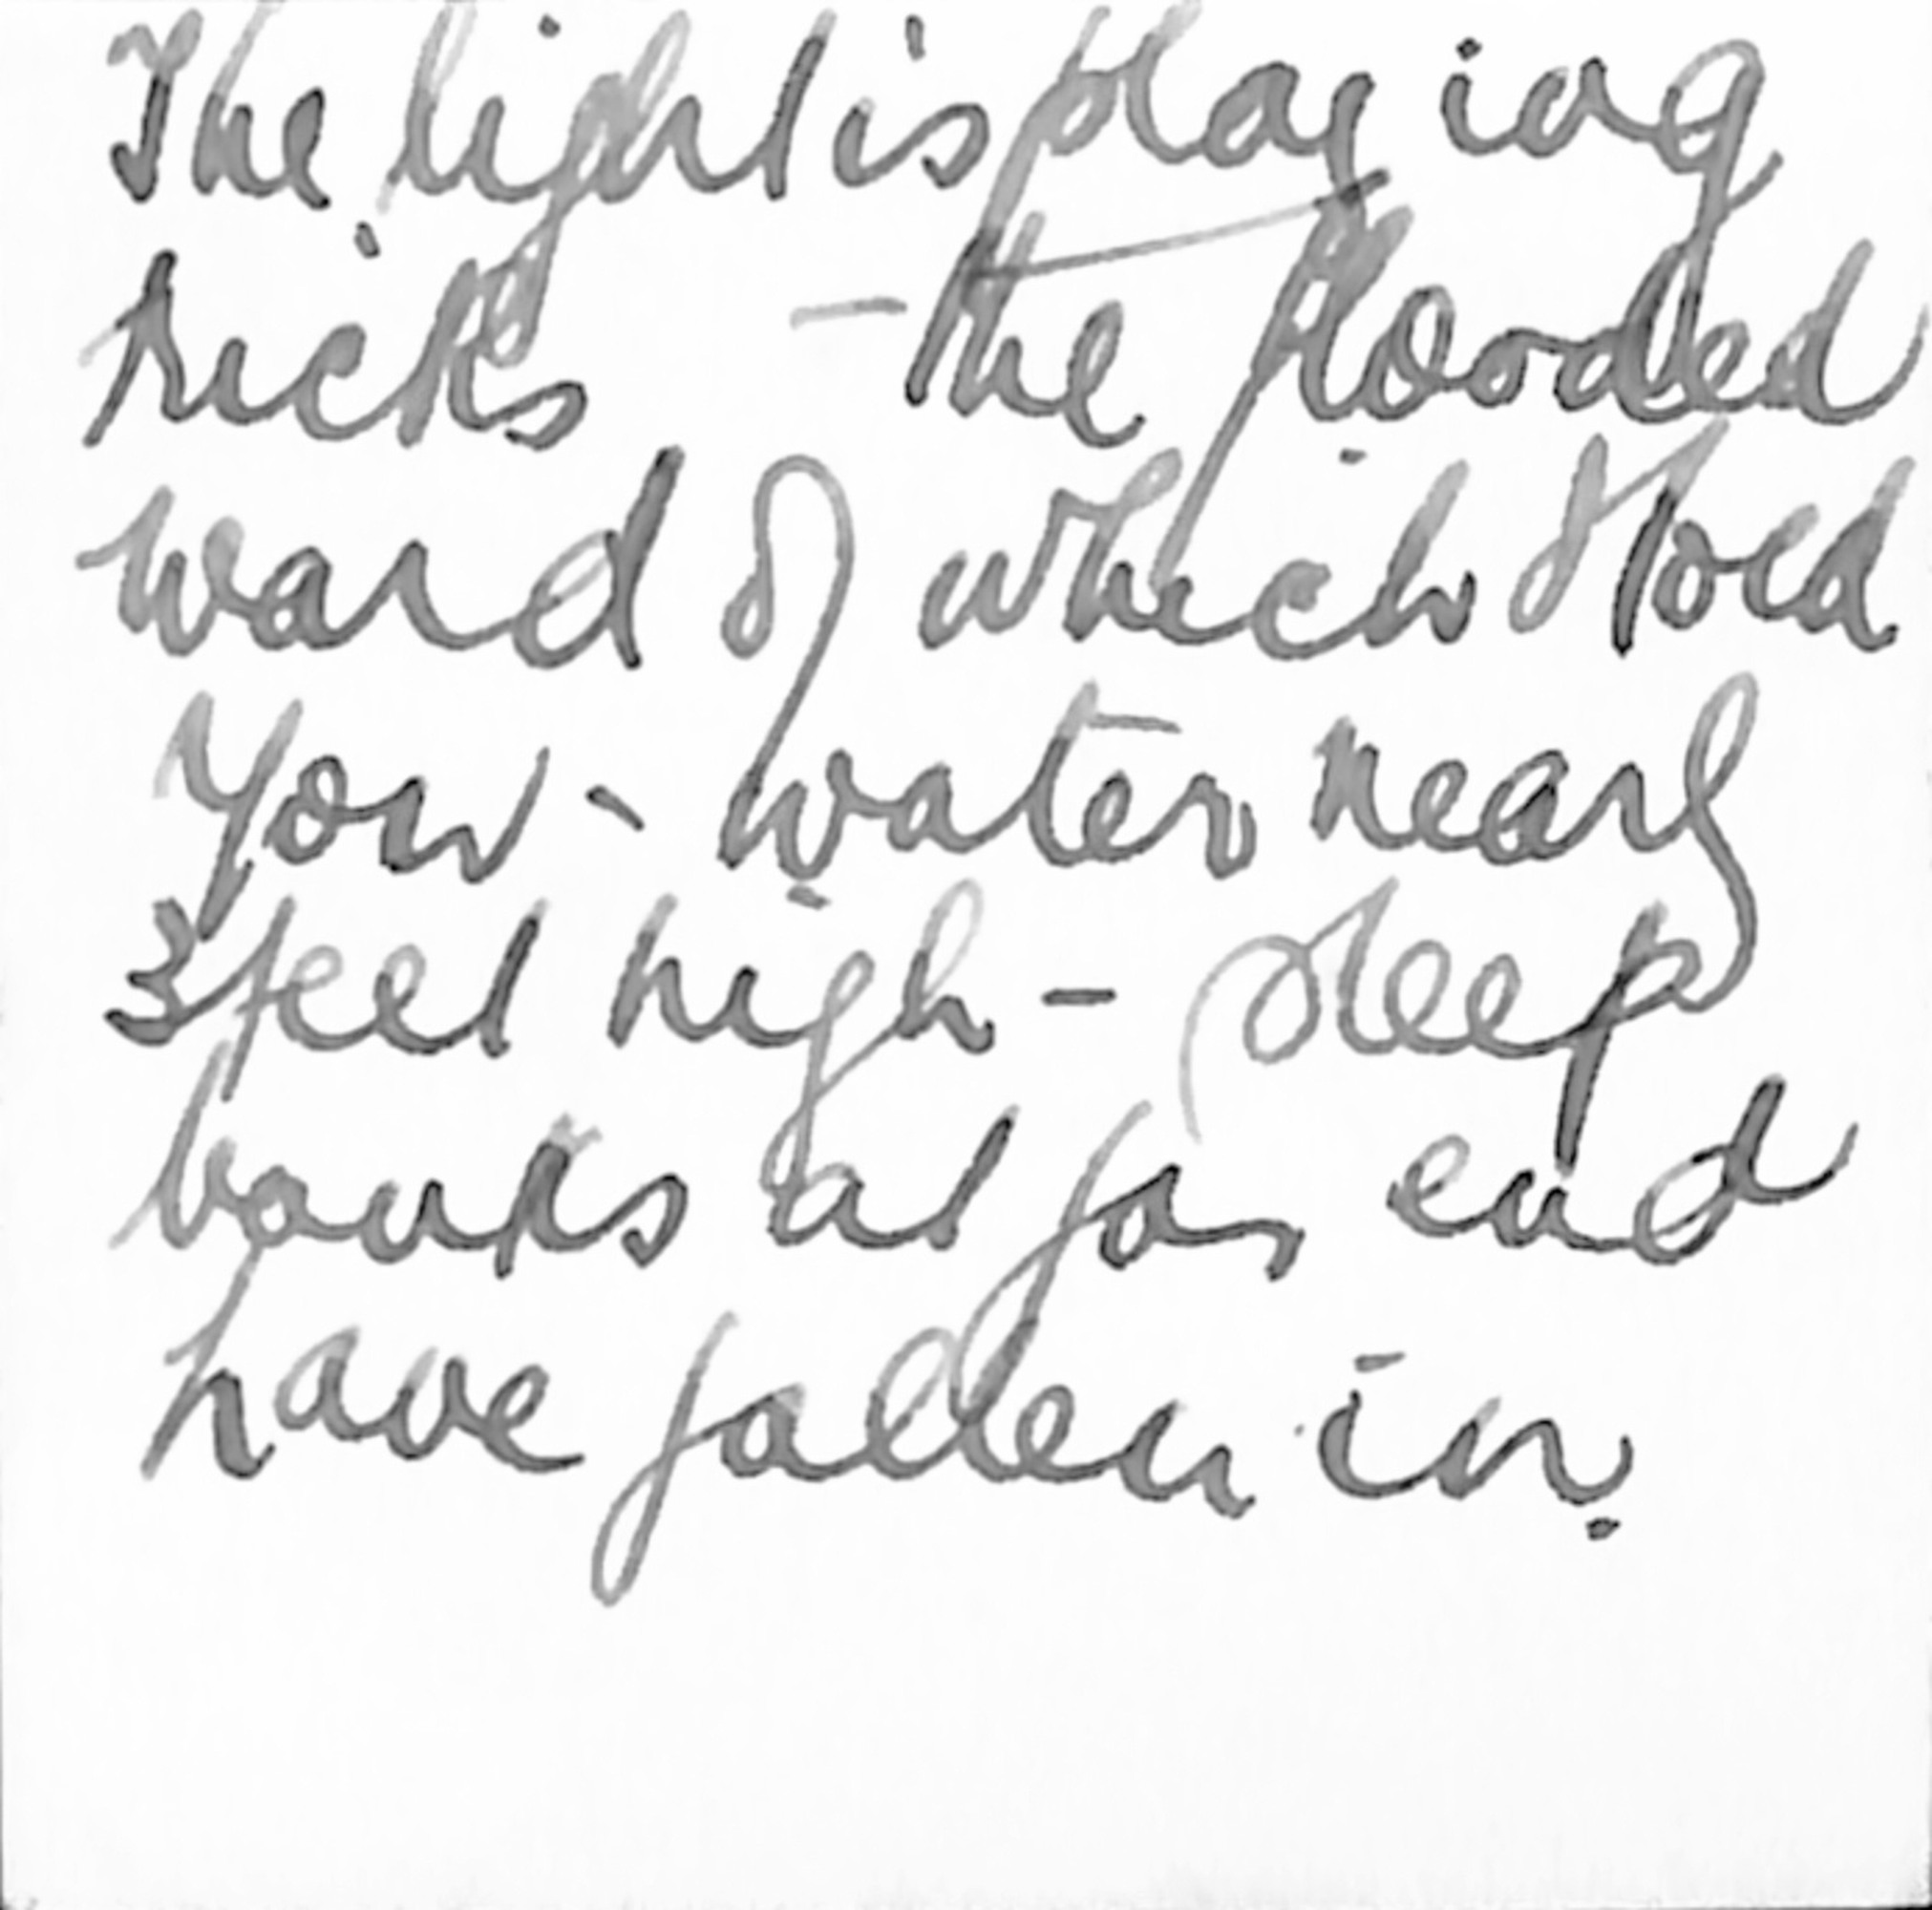 The light is playing
tricks - the flooded
ward of which I told
you - water nearly
3 feet high - steep
banks at far end
have fallen in.